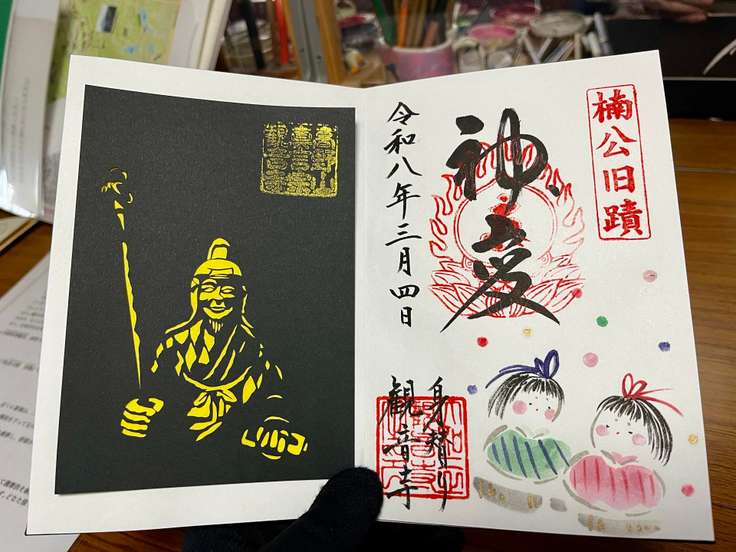 楠公旧蹟
神変
令和八年三月四日
身替り
観音寺